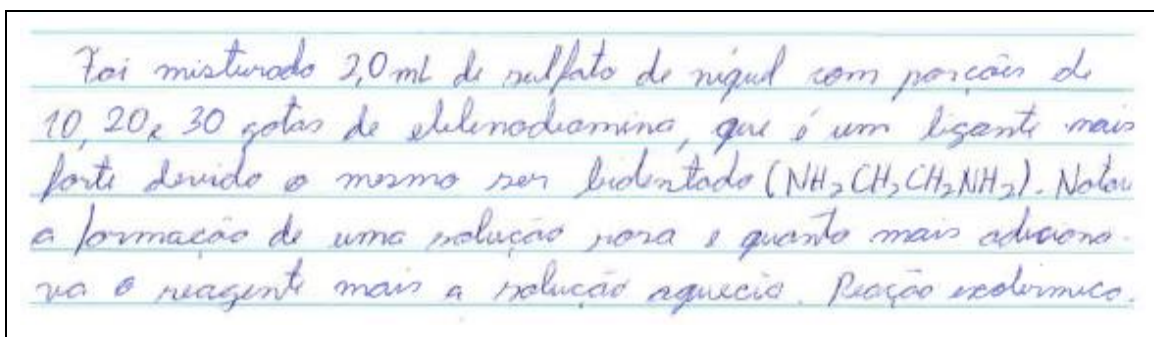 Foi misturado 2,0 ml de sulfato de níquel com porcões de
10, 20 e 30 gotas de etilenodiamina, que é um ligante mais
forte devido o mesmo ser bidentado (NH₂CH₂CH₂NH₂). Notou
a formacão de uma solução rosa e quanto mais adiciona-
va o reagente mais a solucão aquecia. Reação exotérmica.